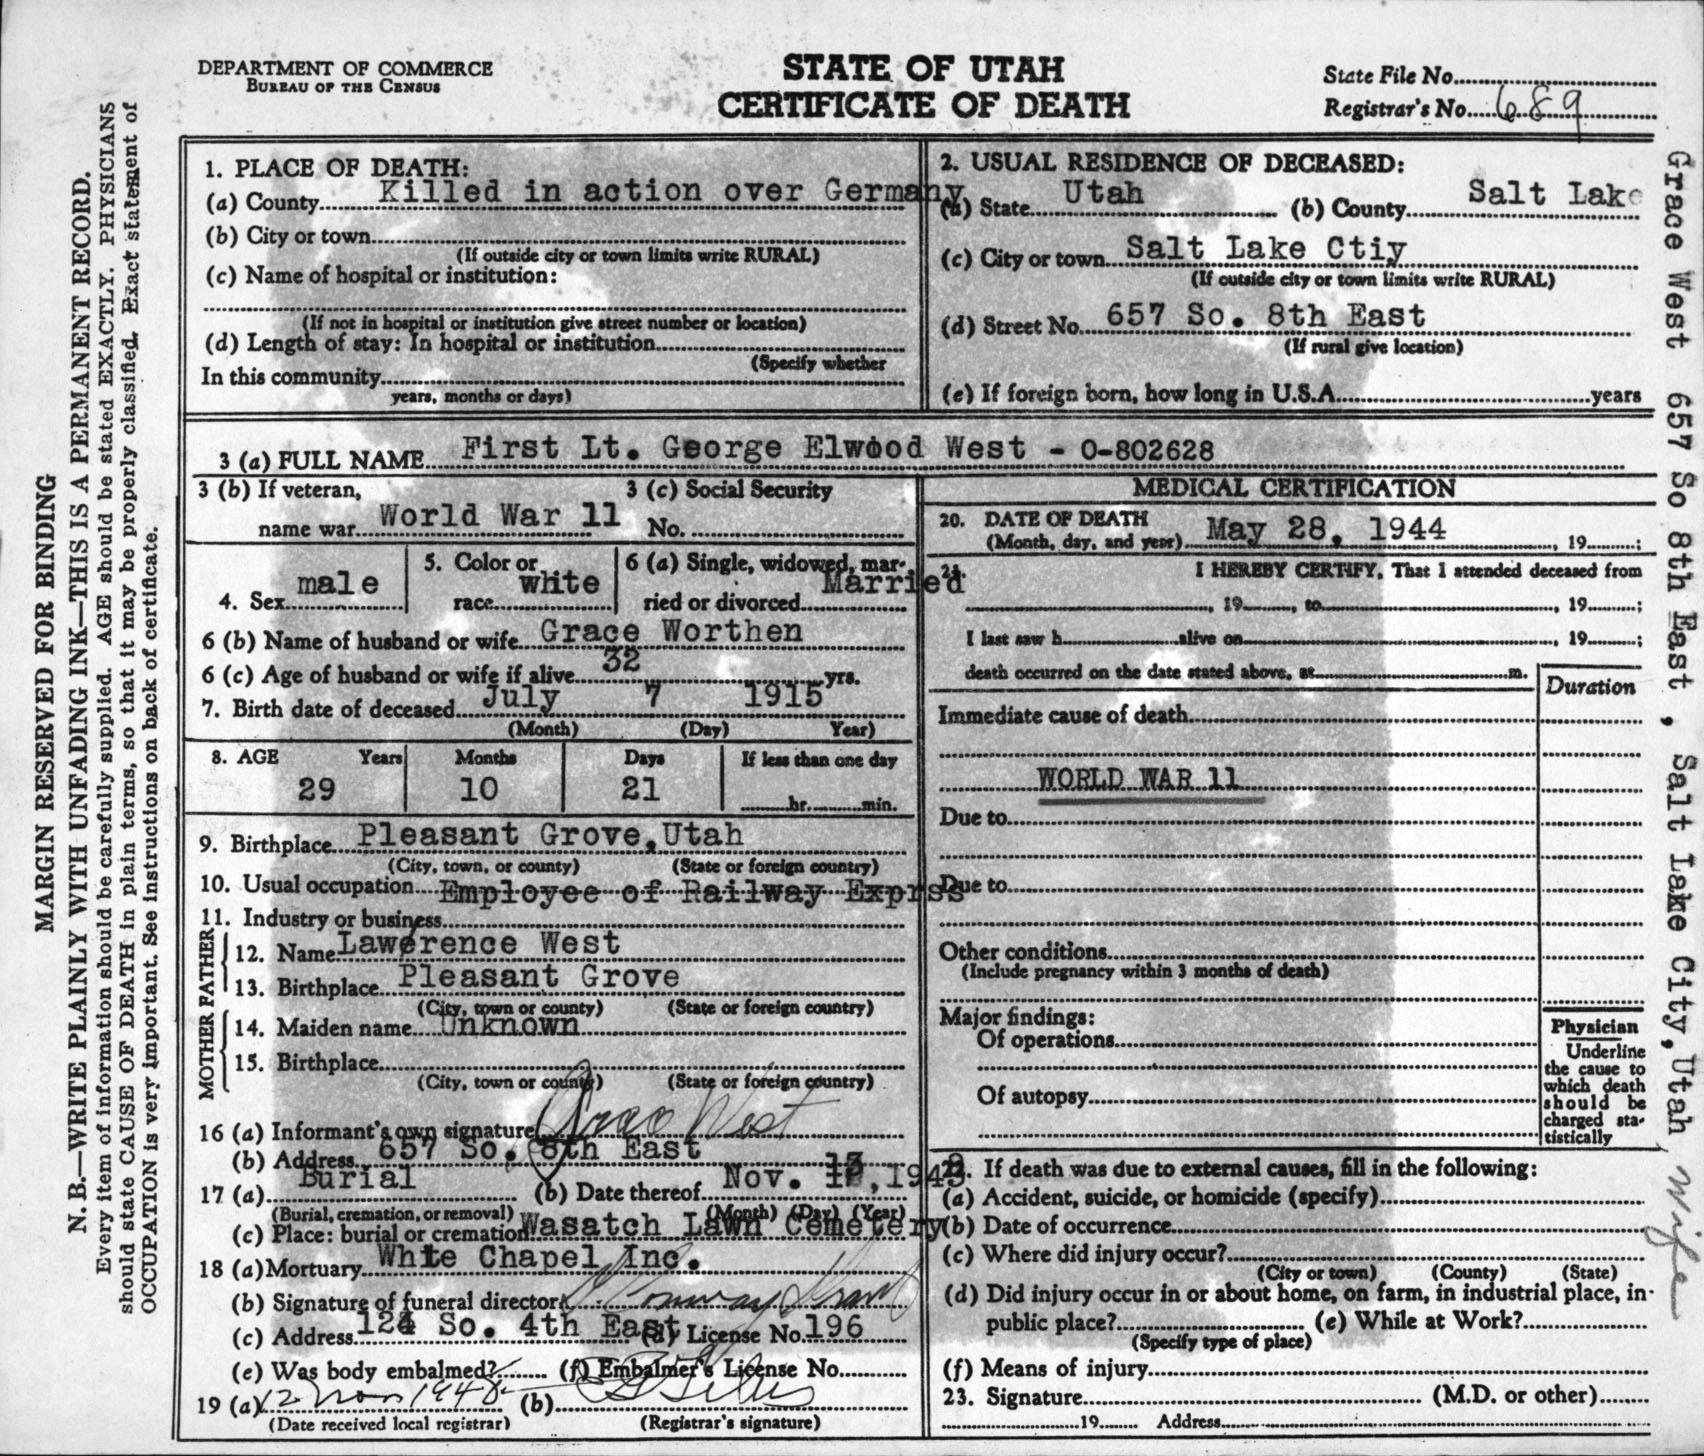 DEPARTMENT OF COMMERCE
BUREAU OF THE CENSUS
STATE OF UTAH
CERTIFICATE OF DEATH
State File No.
Registrar's No. 689
MARGIN RESERVED FOR BINDING
N. B.—WRITE PLAINLY WITH UNFADING INK—THIS IS A PERMANENT RECORD.
Every item of information should be carefully supplied. AGE should be stated EXACTLY. PHYSICIANS
should state CAUSE OF DEATH in plain terms, so that it may be properly classified. Exact statement of
OCCUPATION is very important. See instructions on back of certificate.
1. PLACE OF DEATH:
(a) County Killed in action over Germany
(b) City or town
(If outside city or town limits write RURAL)
(c) Name of hospital or institution:
(If not in hospital or institution give street number or location)
(d) Length of stay: In hospital or institution
(Specify whether
In this community
years, months or days)
2. USUAL RESIDENCE OF DECEASED:
(a) State Utah (b) County Salt Lake
(c) City or town Salt Lake Ctiy
(If outside city or town limits write RURAL)
(d) Street No. 657 So. 8th East
(If rural give location)
(e) If foreign born, how long in U.S.A. years
3 (a) FULL NAME First Lt. George Elwood West - O-802628
3 (b) If veteran, 3 (c) Social Security
name war World War 11 No.
4. Sex male 5. Color or race white 6 (a) Single, widowed, married or divorced Married
6 (b) Name of husband or wife Grace Worthen
6 (c) Age of husband or wife if alive 32 yrs.
7. Birth date of deceased July 7 1915
(Month) (Day) Year)
8. AGE Years Months Days If less than one day
29 10 21 hr. min.
9. Birthplace Pleasant Grove, Utah
(City, town, or county) (State or foreign country)
10. Usual occupation Employee of Railway Exprss
11. Industry or business
FATHER
12. Name Lawrence West
13. Birthplace Pleasant Grove
(City, town or county) (State or foreign country)
MOTHER
14. Maiden name Unknown
15. Birthplace
(City, town or county) (State or foreign country)
16 (a) Informant's own signature Grace West
(b) Address 657 So. 8th East
17 (a) Burial (b) Date thereof Nov. 13, 1948
(Burial, cremation, or removal) (Month) (Day) (Year)
(c) Place: burial or cremation Wasatch Lawn Cemetery
18 (a) Mortuary White Chapel Inc.
(b) Signature of funeral director
(c) Address 124 So. 4th East (d) License No. 196
(e) Was body embalmed? (f) Embalmer's License No.
19 (a) 12 Nov 1948 (b)
(Date received local registrar) (Registrar's signature)
MEDICAL CERTIFICATION
20. DATE OF DEATH
(Month, day, and year) May 28, 1944 , 19 ;
21. I HEREBY CERTIFY, That I attended deceased from
, 19 , to , 19 ;
I last saw h alive on , 19 ;
death occurred on the date stated above, at m.
Duration
Immediate cause of death
WORLD WAR 11
Due to
Due to
Other conditions
(Include pregnancy within 3 months of death)
Major findings:
Of operations
Of autopsy
Physician
Underline
the cause to
which death
should be
charged sta-
tistically
22. If death was due to external causes, fill in the following:
(a) Accident, suicide, or homicide (specify)
(b) Date of occurrence
(c) Where did injury occur?
(City or town) (County) (State)
(d) Did injury occur in or about home, on farm, in industrial place, in-
public place? (e) While at Work?
(Specify type of place)
(f) Means of injury
23. Signature (M.D. or other)
19 Address
Grace West 657 So 8th East , Salt Lake City, Utah, wife